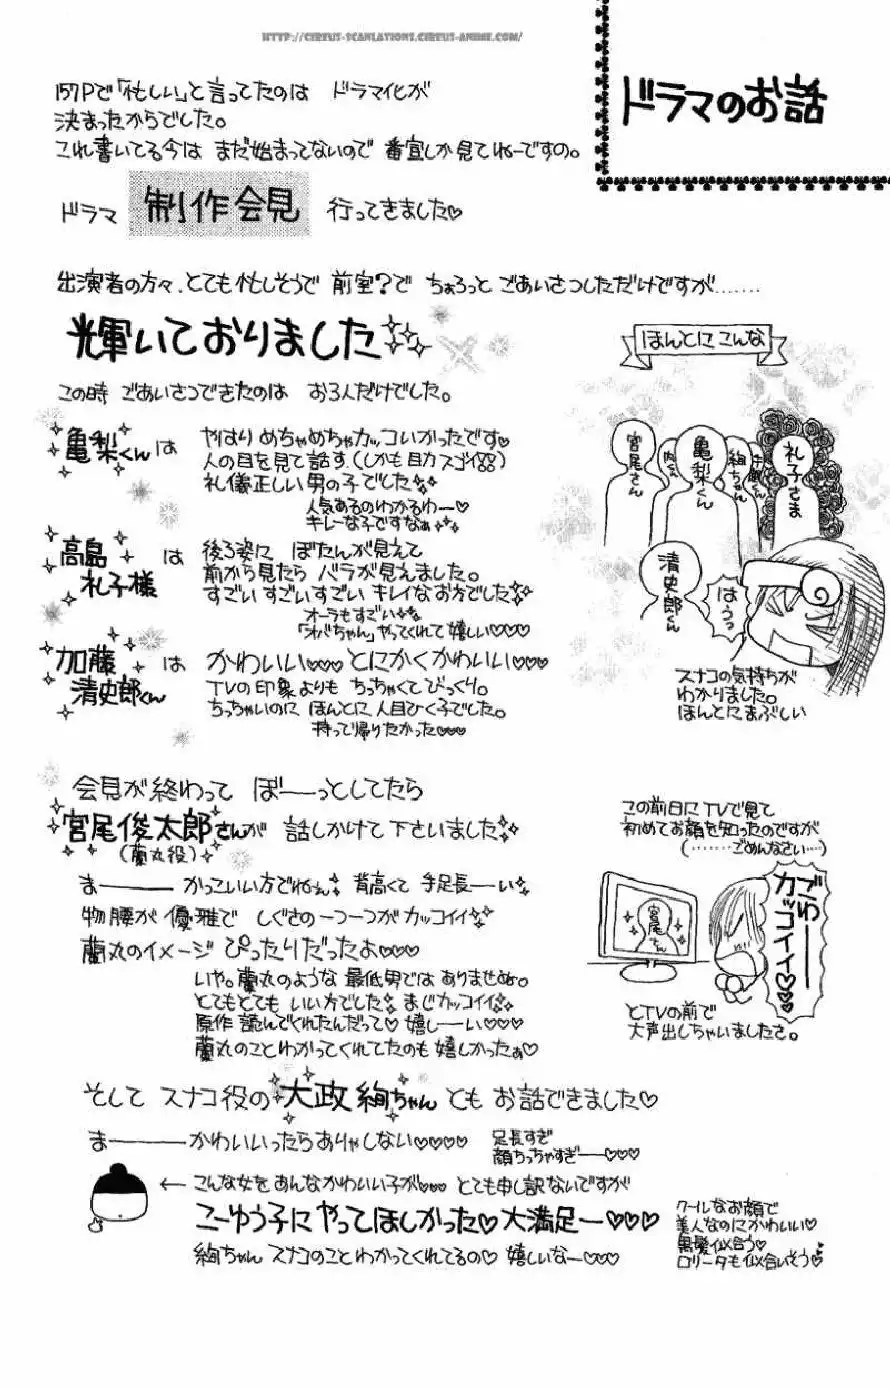 HTTP://CEREUS-SCANLATIONS.CEREUS-ANIME.COM/
ドラマのお話
157Pで「忙しい」と言ってたのは ドラマ化が
決まったからでした。
これ書いてる今は まだ始まってないので 番宣しか見てねーですの。
ドラマ 制作会見 行ってきました♡
出演者の方々、とても忙しそうで 前室?で ちょろっと ごあいさつしただけですが.......
輝いておりました
この時 ごあいさつできたのは お3人だけでした。
亀梨くんは やはり めちゃめちゃカッコいかったです♡
人の目を見て話す。(しかも目力スゴイ)
礼儀正しい男の子でした
人気あるのわかるわー♡
キレーな子ですなぁ
高島礼子様は 後ろ姿に ぼたんが見えて
前から見たら バラが見えました。
すごい すごい すごい キレイなお方でした
オーラもすごい
「オバちゃん」やってくれて嬉しい♡♡♡
加藤清史郎くんは かわいい♡♡♡ とにかくかわいい♡♡♡
TVの印象よりも ちっちゃくてびっくり。
ちっちゃいのに ほんとに人目ひく子でした。
持って帰りたかった♡♡♡
ほんとにこんな
宮尾さん
内くん
亀梨くん
絢ちゃん
手越くん
礼子さま
清史郎くん
はうっ
スナコの気持ちが
わかりました。
ほんとにまぶしい
会見が終わって ぼーーっとしてたら
宮尾俊太郎さんが 話しかけて下さいました
(蘭丸役)
まーーーー かっこいい方でねぇ 背高くて 手足長ーーい
物腰が優雅で しぐさの一つ一つがカッコイイ
蘭丸のイメージ ぴったりだったよ♡♡♡
いや。蘭丸のような 最低男では ありませぬ。
とてもとても いい方でした まじカッコイイ
原作 読んでくれたんだって♡ 嬉しーーい♡♡♡
蘭丸のことわかってくれてたのも 嬉しかったぁ♡
この前日にTVで見て
初めてお顔を知ったのですが
(.......ごめんなさい...)
宮尾さん
ごわーーー
カッコイイ♡♡♡
とTVの前で
大声出しちゃいましたさ。
そして スナコ役の 大政絢ちゃん とも お話できました♡
まーーーー かわいいったらありゃしない♡♡♡♡
足長すぎ
顔ちっちゃすぎーー♡♡♡
← こんな女をあんなかわいい子が♡♡♡ とても申し訳ないですが
こーゆう子に やってほしかった♡ 大満足ー♡♡♡
絢ちゃん スナコのことわかってくれてるの♡ 嬉しいなー♡♡♡
クールなお顔で
美人なのにかわいい♡
黒髪似合う♡
ロリータも似合いそう♡